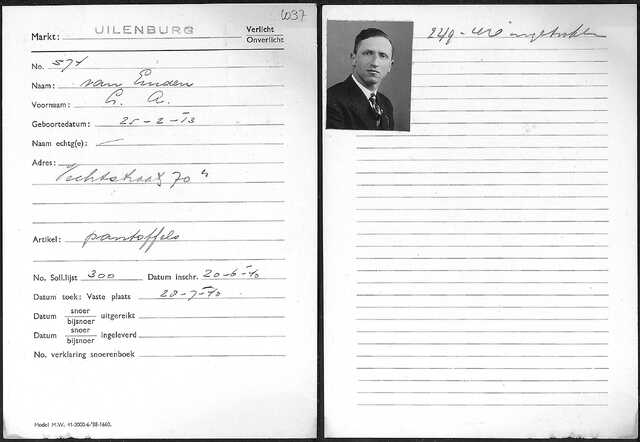 6037
Markt: UILENBURG Verlicht
Onverlicht
No. 571
Naam: van Emden
Voornaam: A.
Geboortedatum: 25-2-13
Naam echtg(e):
Adres:
Vechtstraat 70
Artikel: pantoffels
No. Soll.lijst 300 Datum inschr. 20-6-40
Datum toek: Vaste plaats 28-7-40
Datum snoer uitgereikt
bijsnoer
Datum snoer ingeleverd
bijsnoer
No. verklaring snoerenboek
Model M.W. 41-2000-6/'38-1660.